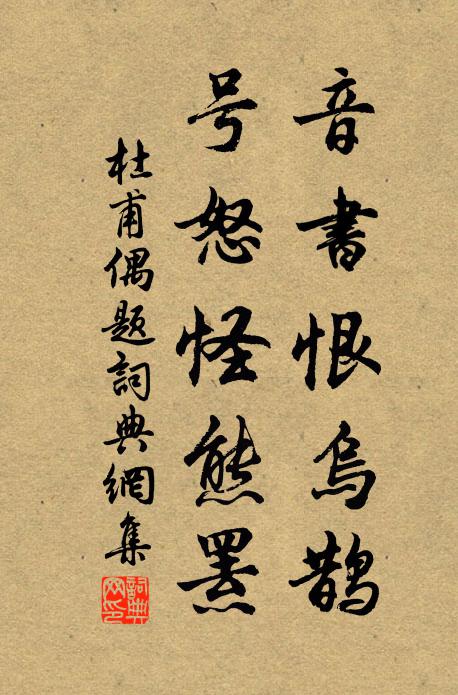 音書恨烏鵲
号怒怪熊羆
杜甫偶题詞典網集
詞典网印